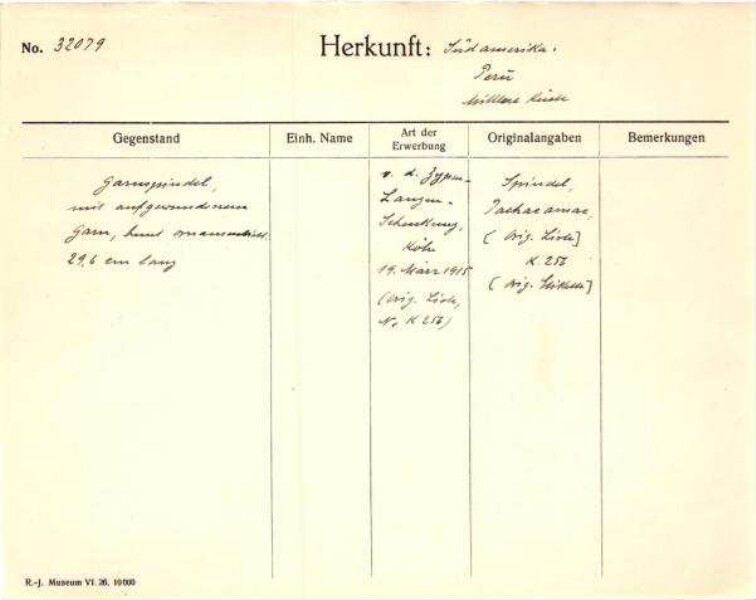 No. 32079
Herkunft: Südamerika.
Perú
Mittlere Küste
Gegenstand
Einh. Name
Art der
Erwerbung
Originalangaben
Bemerkungen
Garnspindel,
mit aufgewundenem
Garn, bunt ornamentiert.
29,6 cm lang
v. d. Zypen-
Langen-
Schenkung,
Köln
19. März 1915
(Orig. Liste,
No K 256)
Spindel,
Pachacamac,
[Orig. Liste]
K. 256
[Orig. Etikette]
R.-J. Museum VI. 26. 10000